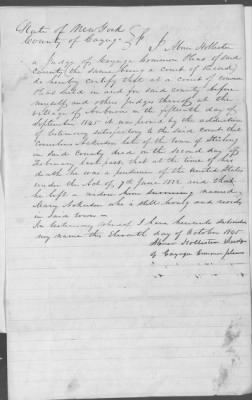 State of New York
County of Cayuga } ss I Abner Hollister
a Judge of Cayuga Common Pleas of said
County (the same being a court of record)
do hereby certify that at a court of common
Pleas held in and for said county before
myself and other Judges thereof at the
village of Auburn on the fifteenth day of
September 1845 it was proved by the adduction
of testimony satisfactory to the said court that
Cornelius late of the town of Sterling
in said County died on the second day of
February last past, that at the time of his
death he was a pensioner of the United States
under the Act of 7th June 1832 and that
he left a widow him surviving named
Mary who is still living and resides
in said town —
In testimony whereof I have hereunto subscribed
my name this Eleventh day of October 1845
Abner Hollister Judge
of Cayuga Common pleas